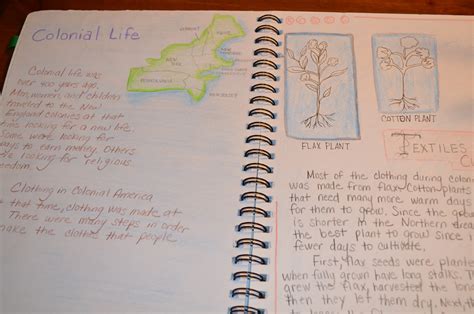 Colonial Life
Colonial life was
over 400 years ago.
Men, women, and children
traveled to the New
England colonies at that
looking for a new life.
Some were looking for
ways to earn money. Others
looking for religious
Clothing in Colonial America
that time, clothing was made at
There were many steps in order
make the clothes that people
NEW YORK
PENNSYLVANIA
NEW JERSEY
FLAX PLANT
COTTON PLANT
TEXTILES
Most of the clothing during colon
was made from flax. Cotton plants
that need many more warm days
for them to grow. Since the
is shorter in the Northern
the best plant to grow since
fewer days to cultivate.
First, flax seeds were plante
when fully grown have long stalks.
grew the flax, harvested the
then they let them dry. Next,